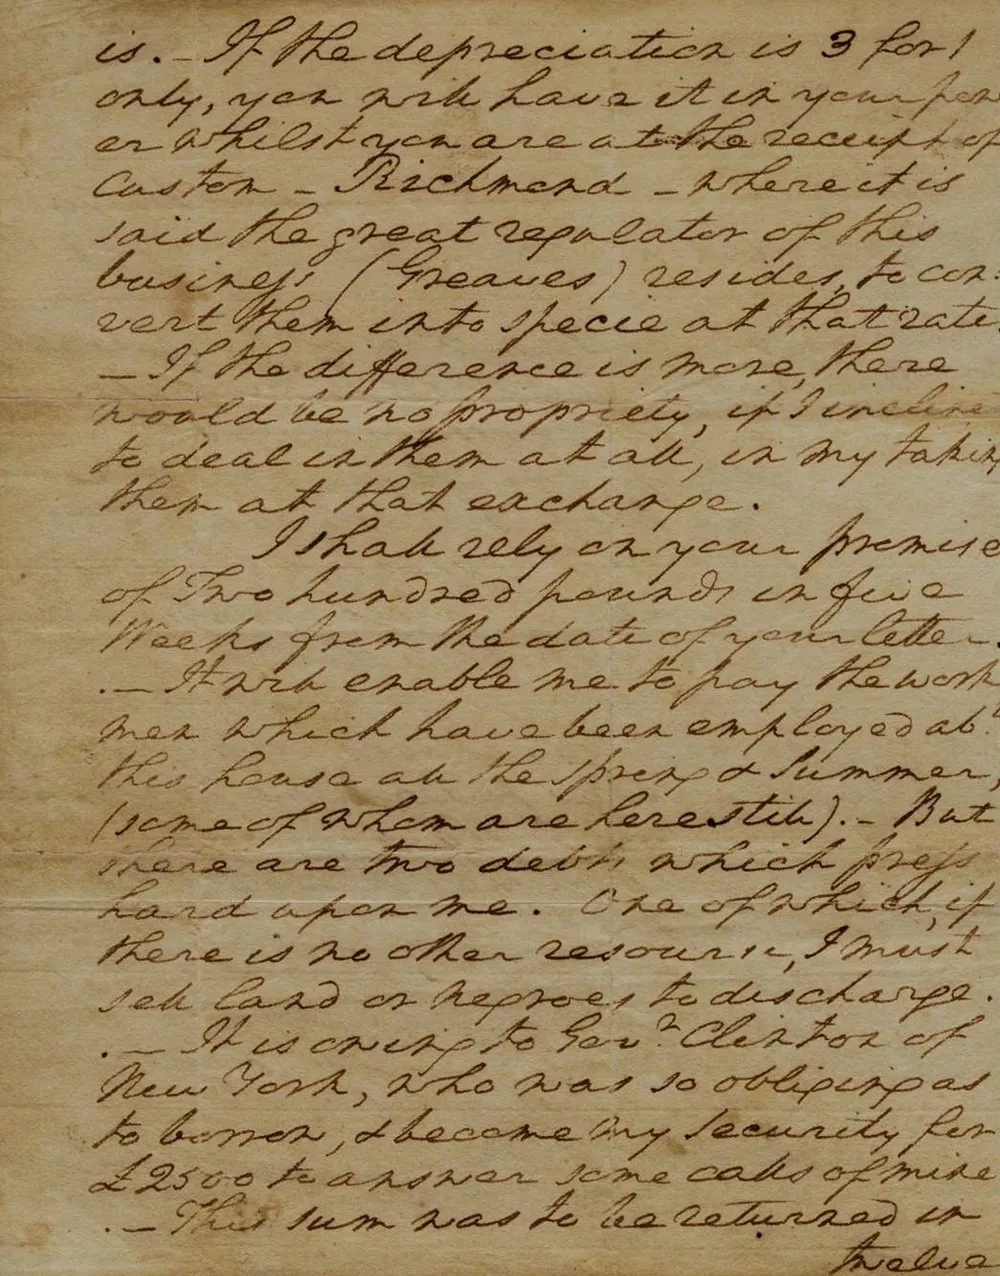 is. – If the depreciation is 3 for 1
only, you will have it in your pow
er whilst you are at the receipt of
Custom – Richmond – where it is
said the great regulator of this
business (Greaves) resides, to con:
vert them into specie at that rate.
– If the difference is more, there
would be no propriety, if I incline
to deal in them at all, in my taking
them at that exchange.
I shall rely on your promise
of Two hundred pounds in five
Weeks from the date of your letter.
. – It will enable me to pay the work
men which have been employed abt.
this house all the spring & Summer,
(some of whom are here still). – But
there are two debts which press
hard upon me. One of which, if
there is no other resource, I must
sell land or negroes to discharge.
. – It is owing to Govr. Clinton of
New York, who was so obliging as
to borrow, & become my security for
£2500 to answer some calls of mine
. – This sum was to be returned in
twelve